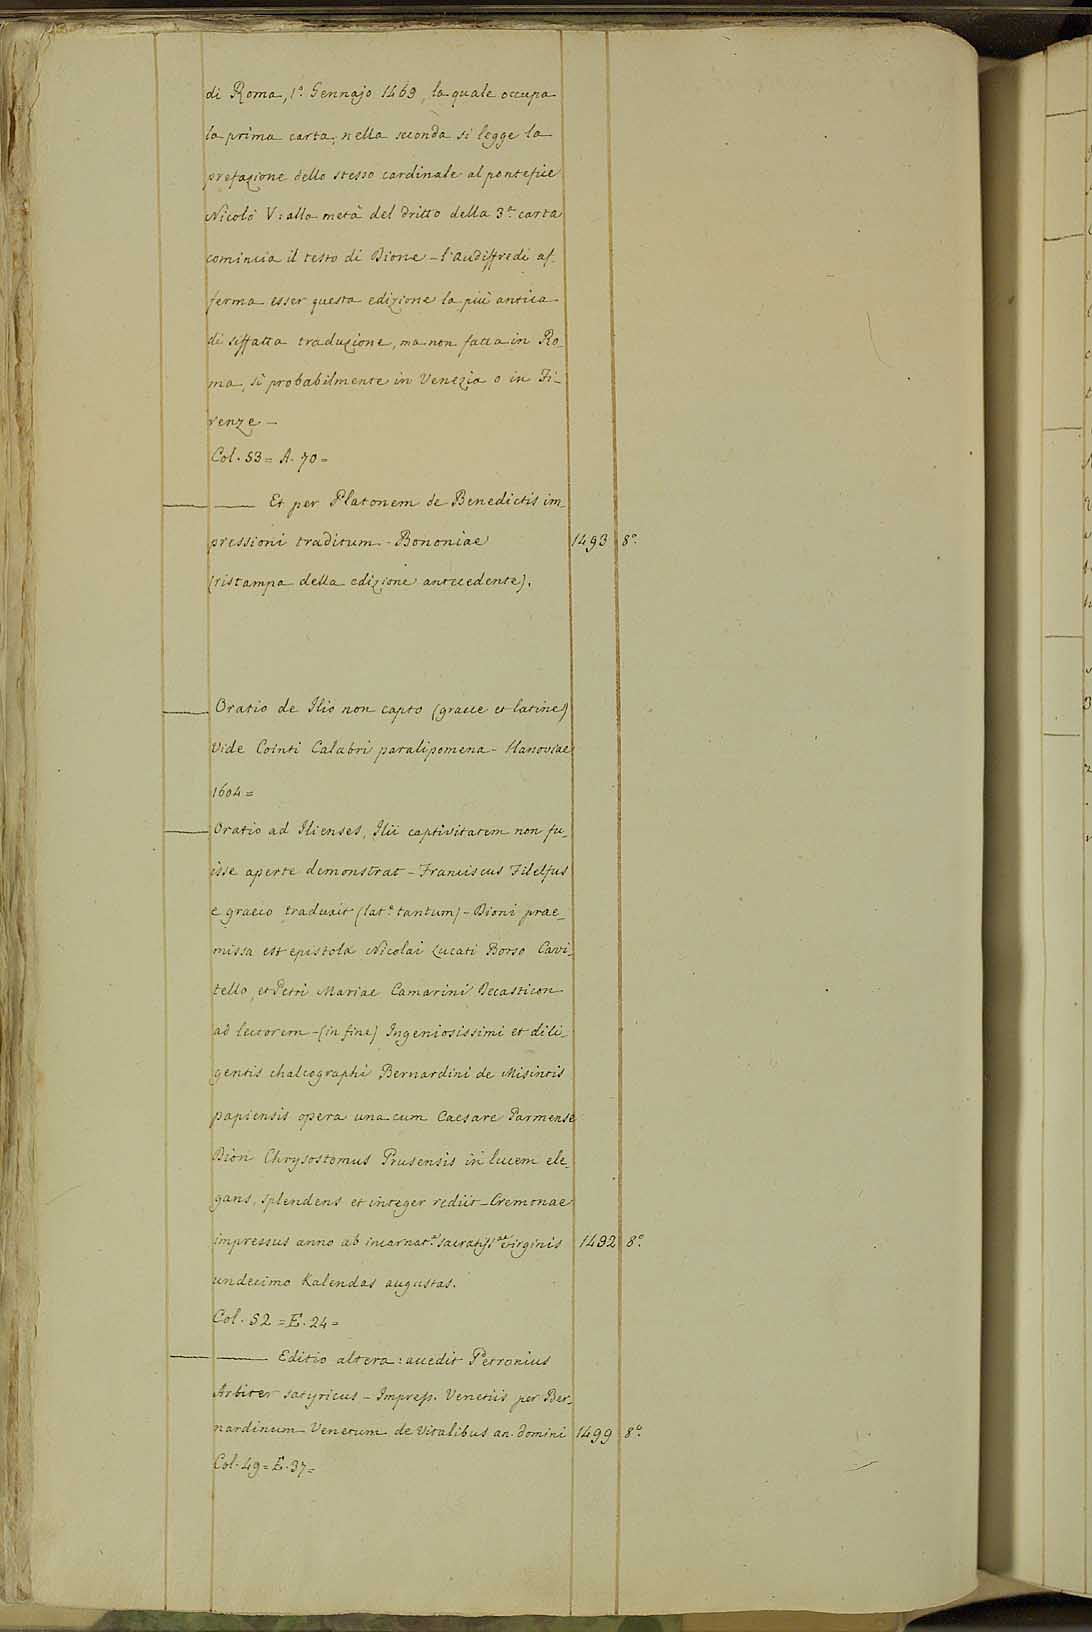 di Roma, 1.° Gennajo 1469, la quale occupa
la prima carta, nella seconda si legge la
prefazione dello stesso cardinale al pontefice
Nicolò V: alla metà del dritto della 3.ª carta
comincia il testo di Dione - l'Audiffredi af-
ferma esser questa edizione la più antica
di siffatta traduzione, ma non fatta in Ro-
ma, sì probabilmente in Venezia o in Fi-
renze -
Col. 53 = A. 70 =
Et per Platonem de Benedictis im-
pressioni traditum - Bononiae 1493 8.°
(ristampa della edizione antecedente).
Oratio de Ilio non capto (graece et latine)
Vide Cointi Calabri paralipomena - Hanoviae
1604 =
Oratio ad Ilienses, Ilii captivitatem non fu-
isse aperte demonstrat - Franciscus Filelfus
e graeco traduxit (lat.e tantum) - Dioni prae-
missa est epistola Nicolai Lucari Borso Cavi-
tello, et Petri Mariae Camarini Decasticon
ad lectorem - (in fine) Ingeniosissimi et dili-
gentis chalcographi Bernardini de Misintis
papiensis opera una cum Caesare Parmense
Dion Chrysostomus Prusensis in lucem ele-
gans, splendens et integer rediit - Cremonae
impressus anno ab incarnat.e sacratiss.ae virginis 1492 8.°
undecimo Kalendas augustas.
Col. 52 = E. 24 =
Editio altera: accedit Petronius
Arbiter satyricus - Impress. Venetiis per Ber-
nardinum Venetum de Vitalibus an. domini 1499 8.°
Col. 49 = E. 37 =